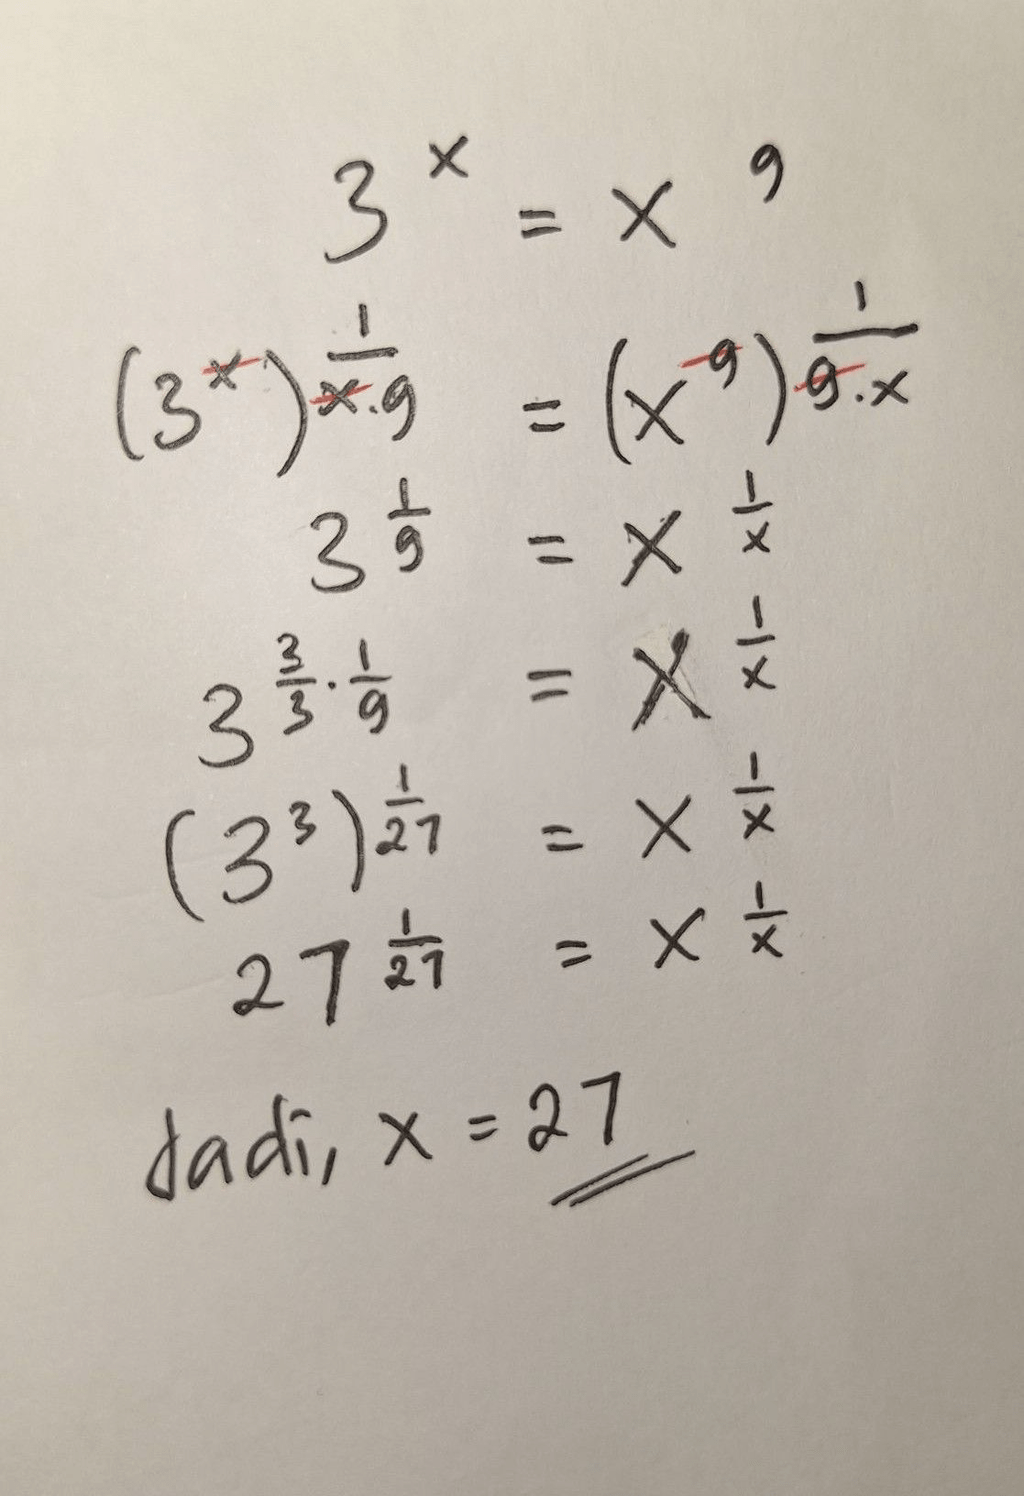 3^x = x^9
(3^x)^(1/(x.9)) = (x^9)^(1/(9.x))
3^(1/9) = x^(1/x)
3^(3/3 . 1/9) = x^(1/x)
(3^3)^(1/27) = x^(1/x)
27^(1/27) = x^(1/x)
Jadi, x = 27